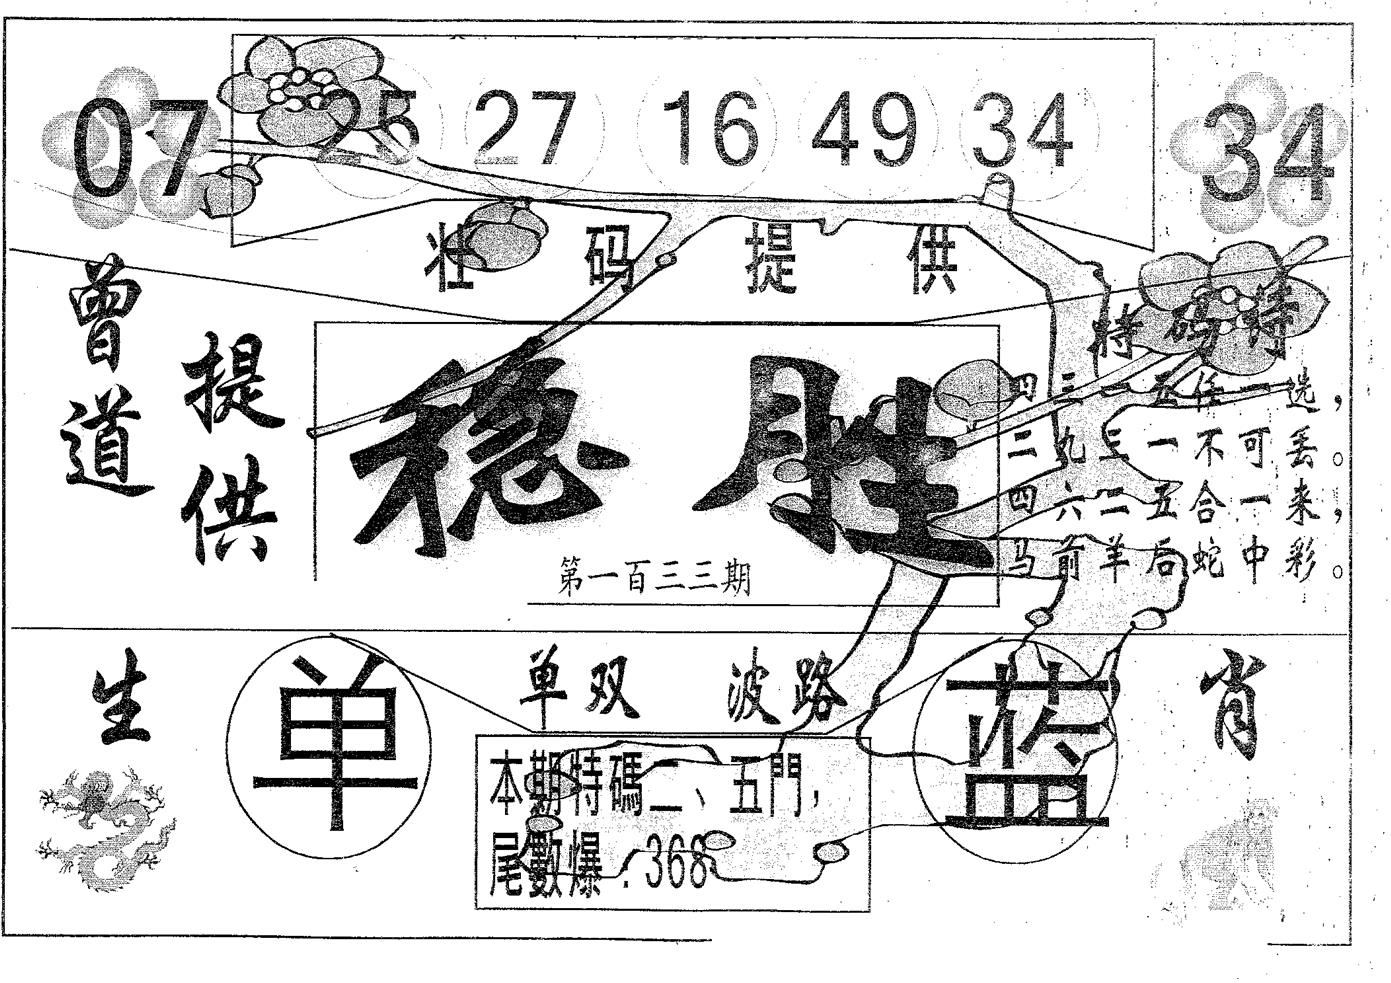 07 25 27 16 49 34 34
壮码提供
曾道
提供
稳胜
第一百三三期
特码诗
四三一五任一选，
二九三一不可丢。
四六二五合一来，
马前羊后蛇中彩。
生
单
单双 波路
蓝
肖
本期特碼二、五門，
尾數爆：368